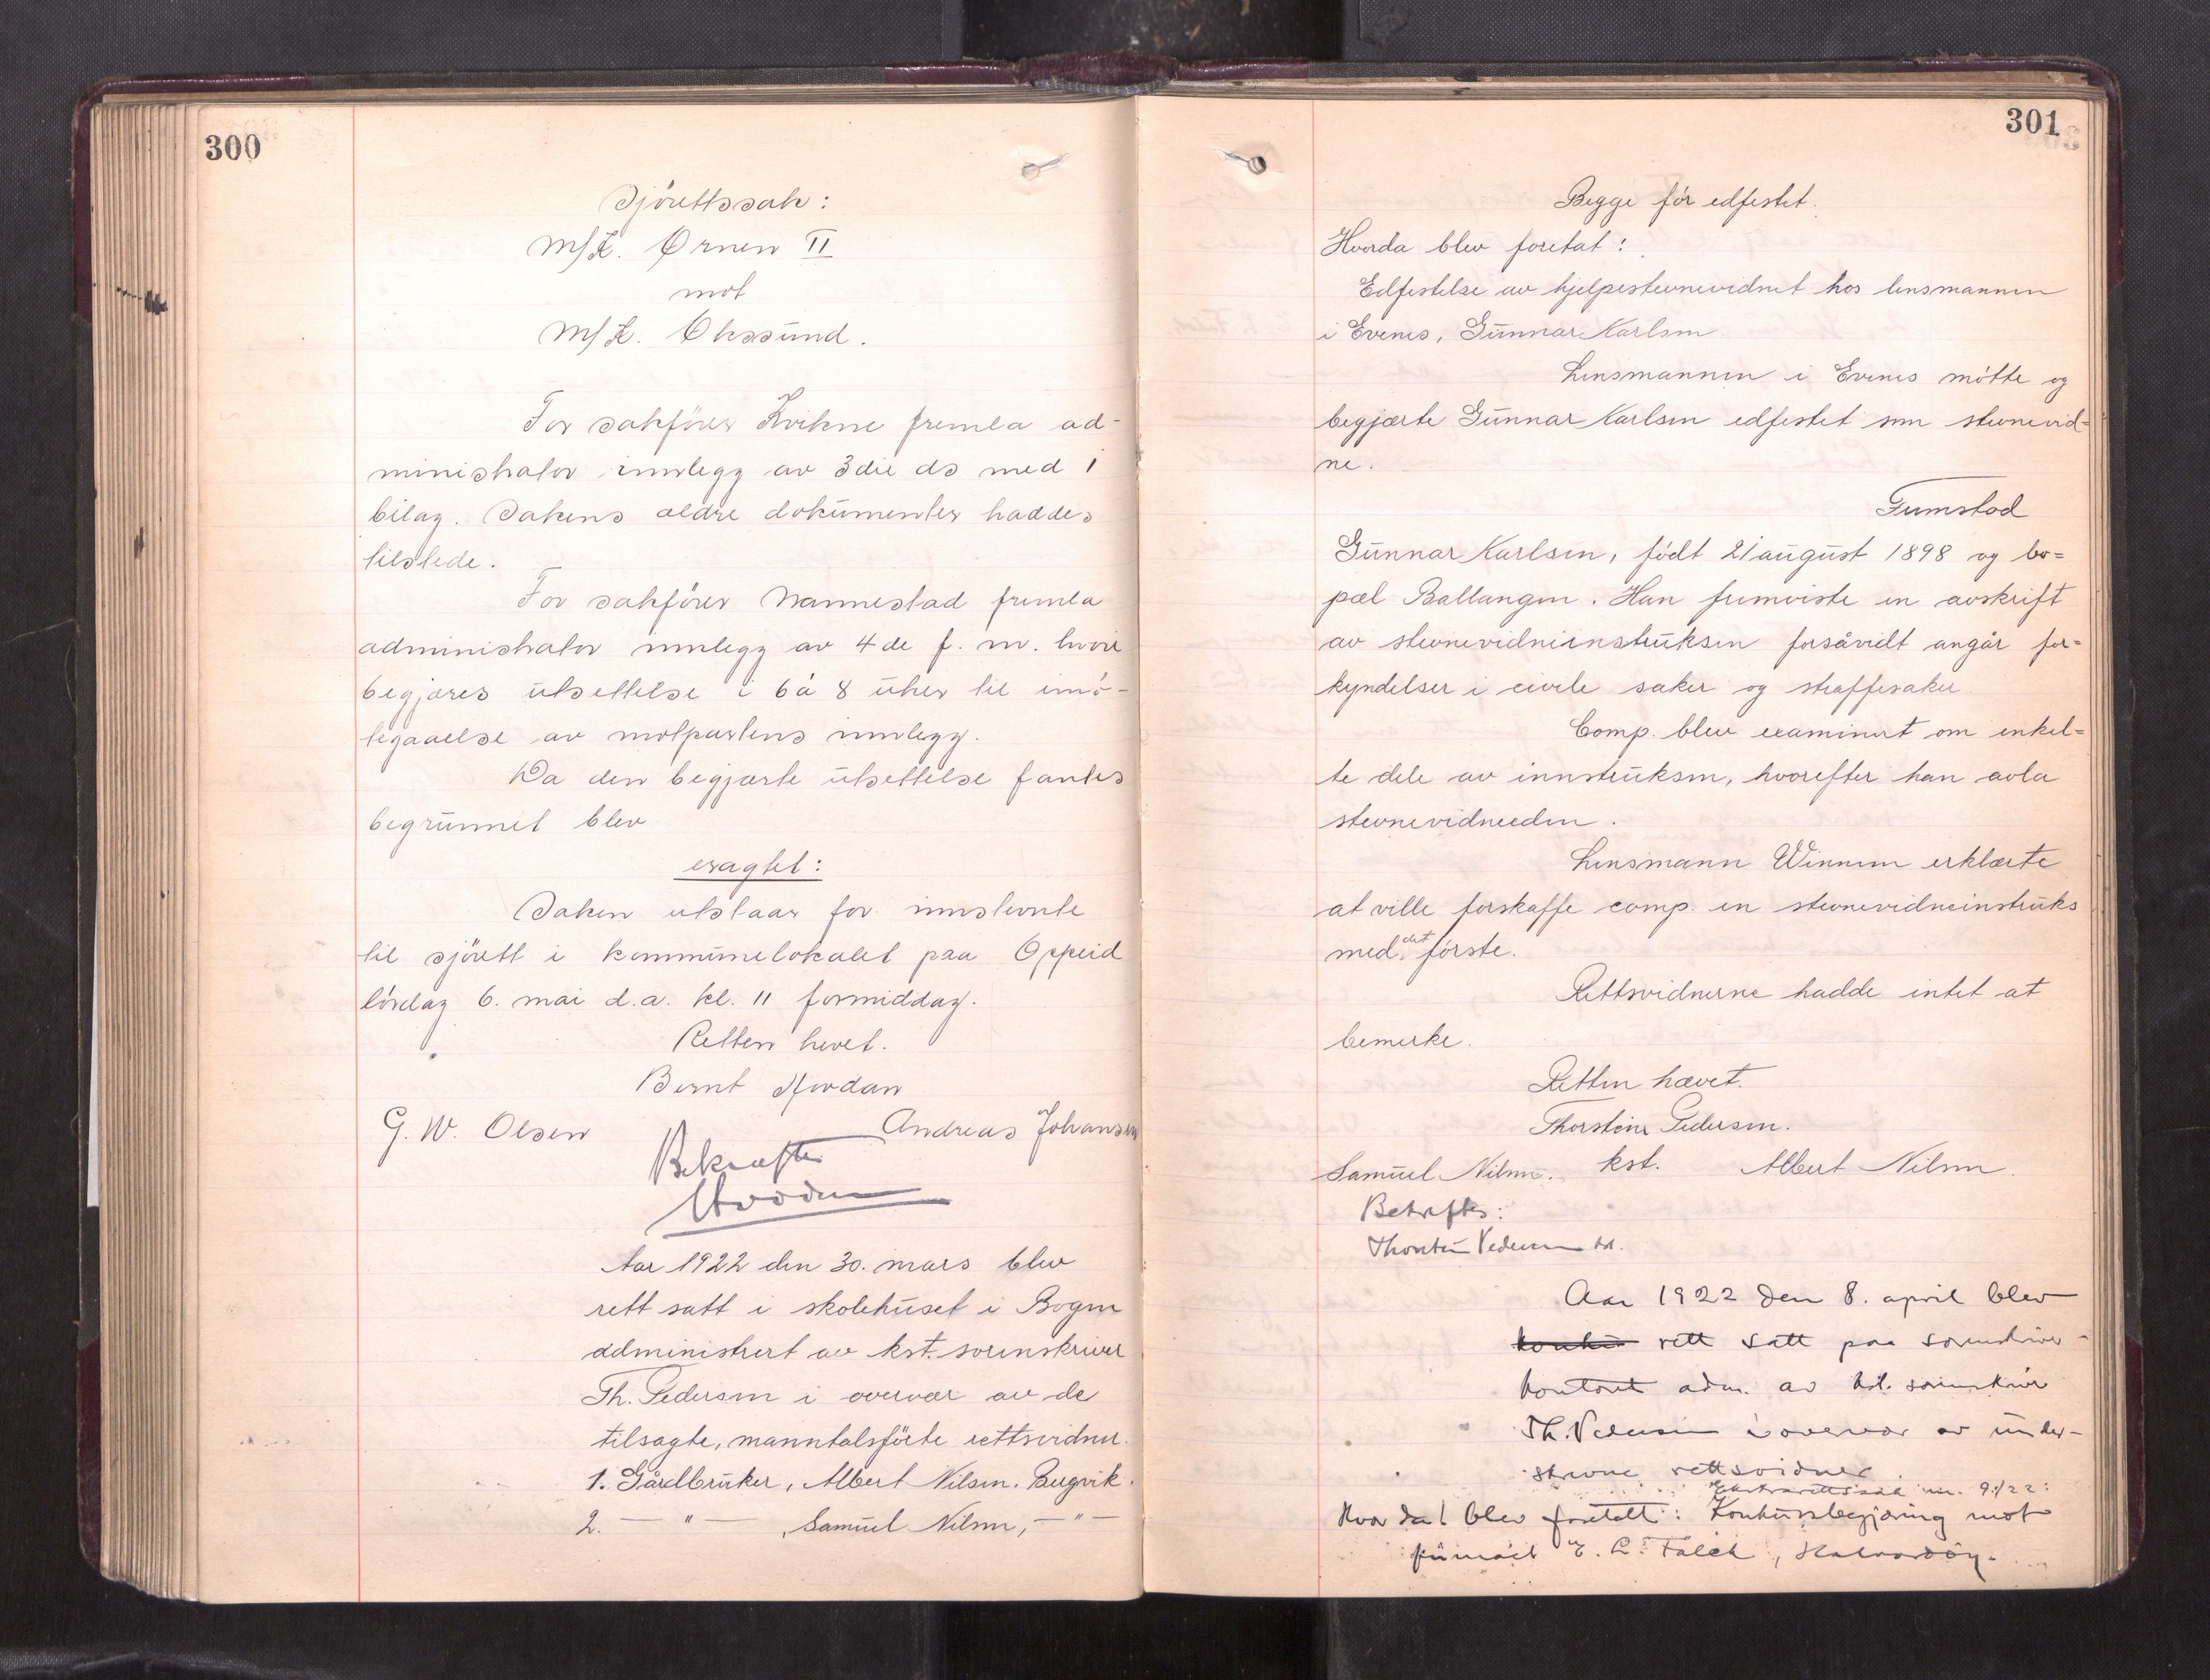 300
Sjörettssak:
M/K. Ørnen II
mot
M/K. Okssund.
For sakförer Kvikne fremla ad-
ministrator innlegg av 3die ds med 1
bilag. Sakens ældre dokumenter haddes
tilstede.
For sakförer Nannestad fremla
administrator innlegg av 4de f. m. hvori
begjæres utsettelse i 6 á 8 uker til imö-
tegaaelse av motpartens innlegg.
Da den begjærte utsettelse fantes
begrunnet blev
eragtet:
Saken utstaar for innstevnte
til sjörett i kommunelokalet paa Oppeid
lördag 6. mai d.a. kl. 11 formiddag.
Retten hevet.
Bernt Hordan
G. W. Olsen
Andreas Johansen
Bekræftes
Aar 1922 den 30. mars blev
rett satt i skolehuset i Bogen
administrert av kst. sorenskriver
Th. Pedersen i overvær av de
tilsagte, manntalsförte rettsvidner.
1. Gårdbruker, Albert Nilsen. Bergvik.
2. — " — , Samuel Nilsen, — " —
301
Begge för edfestet.
Hvorda blev foretat:
Edfestelse av hjelpestevnevidnet hos lensmannen
i Evenes, Gunnar Karlsen.
Lensmannen i Evenes mötte og
begjærte Gunnar Karlsen edfestet som stevnevid-
ne.
Fremstod
Gunnar Karlsen, födt 21 august 1898 og bo=
pæl Ballangen. Han fremviste en avskrift
av stevnevidneinstruksen forsåvidt angår for=
kyndelser i civile saker og straffesaker
Comp. blev examinert om enkel=
te dele av innstruksen, hvorefter han avla
stevnevidneeden.
Lensmann Winnem erklærte
at ville forskaffe comp. en stevnevidneinstruks
med det förste.
Rettsvidnerne hadde intet at
bemerke.
Retten hævet.
Thorstein Pedersen.
Samuel Nilsen. kst. Albert Nilsen.
Betræftes:
Thorstein Pedersen kst.
Aar 1922 den 8. april blev
rett satt paa sorenskriver-
kontoret adm. av kst. sorenskriver
Th. Pedersen i overvær av under-
skrevne rettsvidner.
Ekstrarettssak nr. 9/22:
Hvorda blev foretatt: Konkursbegjæring mot
firmaet E. L. Falch,